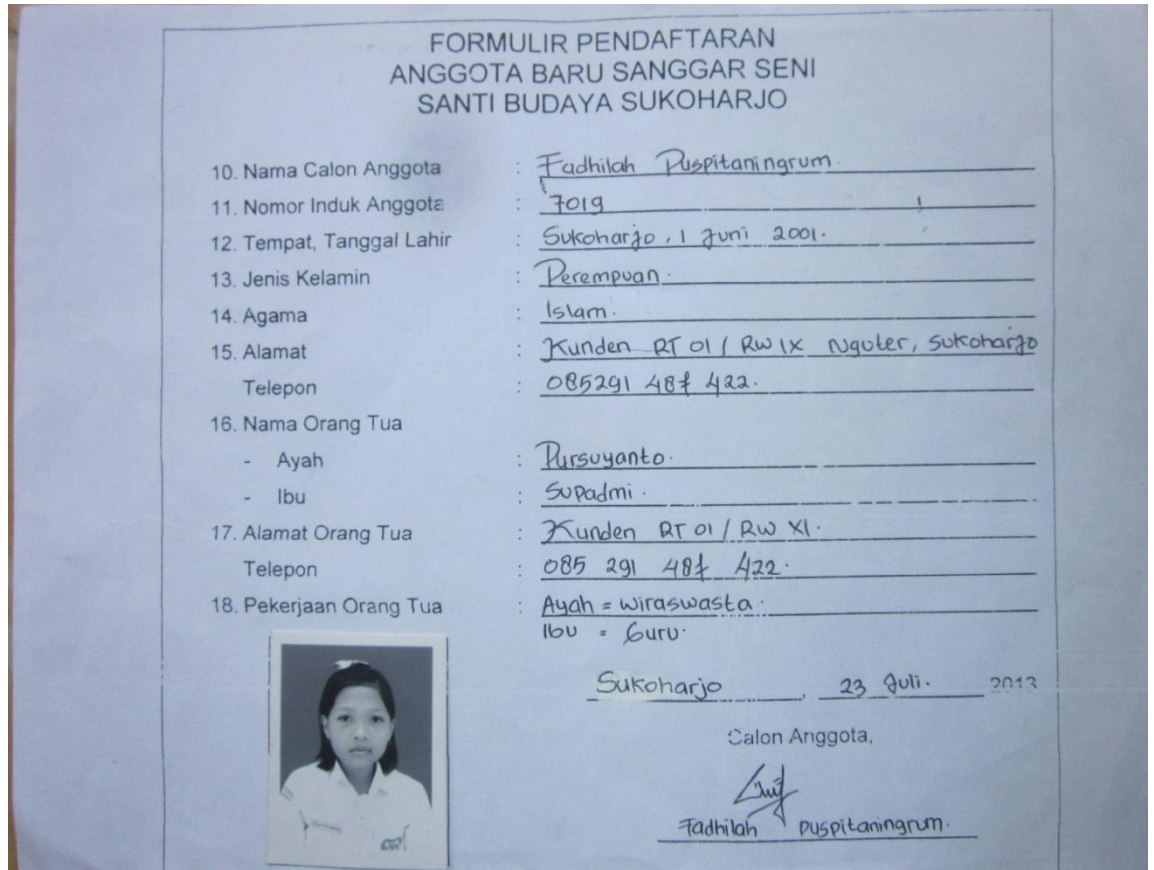 FORMULIR PENDAFTARAN
ANGGOTA BARU SANGGAR SENI
SANTI BUDAYA SUKOHARJO
10. Nama Calon Anggota : Fadhilah Puspitaningrum.
11. Nomor Induk Anggota : 7019
12. Tempat, Tanggal Lahir : Sukoharjo, 1 Juni 2001.
13. Jenis Kelamin : Perempuan.
14. Agama : Islam.
15. Alamat : Kunden RT 01 / RW IX Nguter, Sukoharjo
Telepon : 085291 487 422.
16. Nama Orang Tua
- Ayah : Pursuyanto.
- Ibu : Supadmi.
17. Alamat Orang Tua : Kunden RT 01 / RW XI.
Telepon : 085 291 487 422.
18. Pekerjaan Orang Tua : Ayah = wiraswasta.
Ibu = Guru.
Sukoharjo, 23 Juli. 2013
Calon Anggota,
Fadhilah Puspitaningrum.